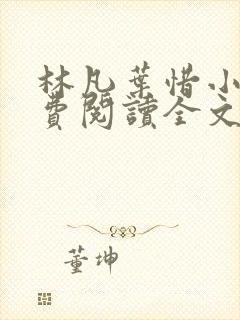 林凡葉惜小
費閱讀全文
董坤